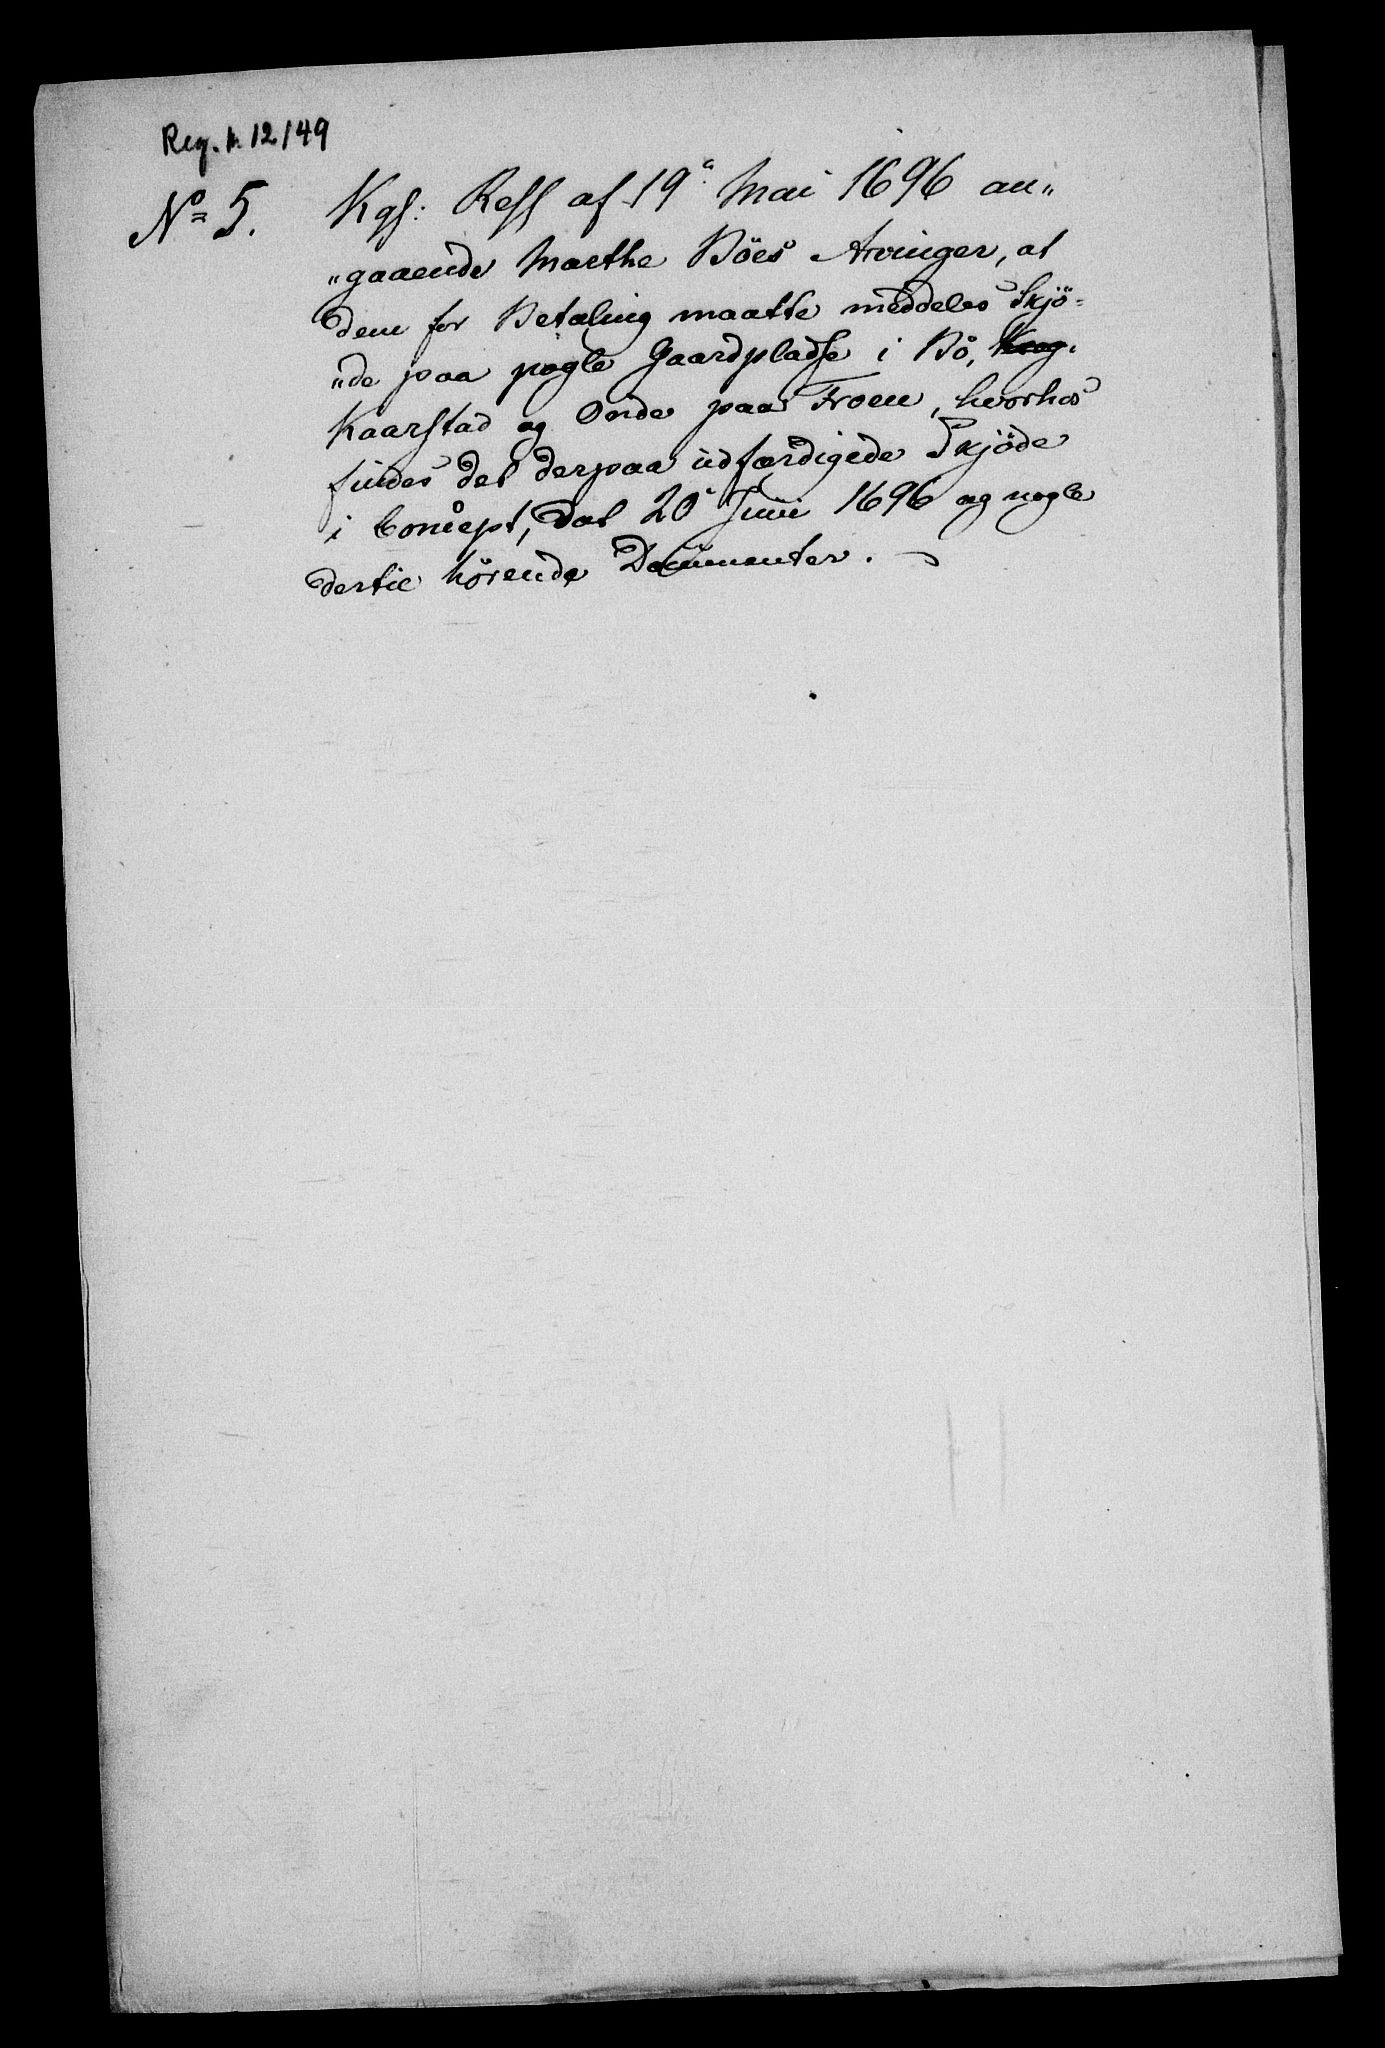 Reg. n. 12/49
No 5. Kgl: Ress af 19de Mai 1696 an„
„gaaende Marthe Böes Arvinger, at
dem for Betaling maatte meddeles Skjö-
„de paa nogle Gaardpladse i Bö,
Kaarstad og Onde paa Froen, hvorhos
findes det derpaa udfærdigede Skjöde
i Concept, dat 20 Juni 1696 og nogle
dertil hörende Documenter.